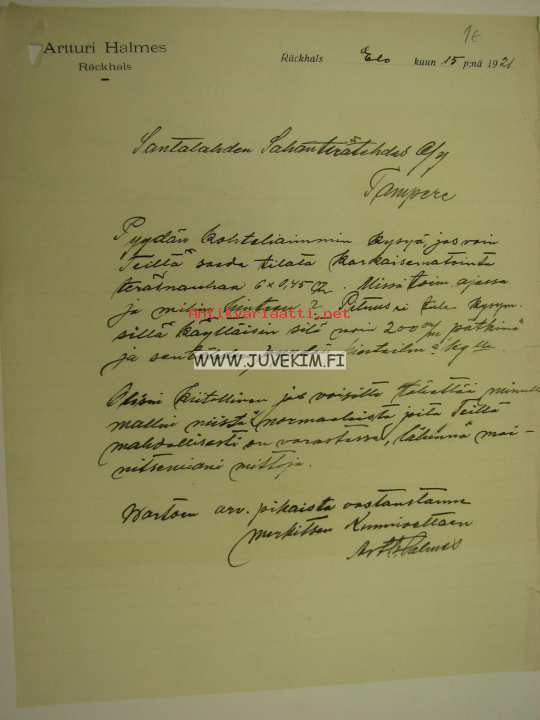 1€
Artturi Halmes
Räckhals
Räckhals Elo kuun 15 p:nä 1921
Santalahden Sahanterätehdas O/y
Tampere
Pyydän kohteliaimmin kysyä, jos voin
Teiltä saada tilata karkaisematonta
teräsnauhaa 6 x 0,45 . Missä ajassa
ja mihin hintaan? Pituus ei tule kysym.
sillä käyttäisin sitä noin 200 m/m pätkinä
ja
Antikvariaatti.net
WWW.JUVEKIM.FI
Olisin kiitollinen jos voisitte lähettää minulle
mallin niistä normaaleista joita Teillä
mahdollisesti on varastossa, lähinnä mai-
nitsemiani mittoja.
Wartoen arv. pikaista vastaustanne
merkitsen Kunnioittaen
Art. Halmes